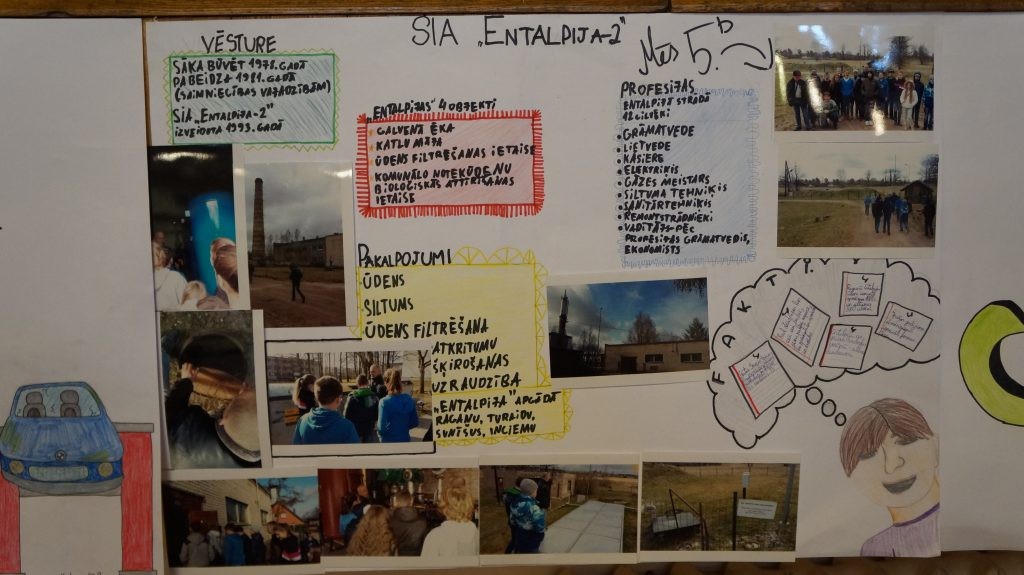 SIA „ENTALPIJA-2"
Mēs 5.b
VĒSTURE
SĀKA BŪVĒT 1978. GADĀ
PABEIDZA 1981. GADĀ
(SAIMNIECĪBAS VAJADZĪBĀM)
SIA „ENTALPIJA-2"
IZVEIDOTA 1993. GADĀ
„ENTALPIJAS" 4 OBJEKTI
• GALVENĀ ĒKA
• KATLU MĀJA
• ŪDENS FILTRĒŠANAS IETAISE
• KOMUNĀLO NOTEKŪDEŅU
BIOLOĢISKĀS ATTĪRĪŠANAS
IETAISE
PROFESIJAS
ENTALPIJĀ STRĀDĀ
12 CILVĒKI
• GRĀMATVEDE
• LIETVEDE
• KASIERE
• ELEKTRIĶIS
• GĀZES MEISTARS
• SILTUMA TEHNIĶIS
• SANITĀRTEHNIĶIS
• REMONTSTRĀDNIEKI
• VADĪTĀJS-PĒC
PROFESIJAS GRĀMATVEDIS,
EKONOMISTS
PAKALPOJUMI
ŪDENS
SILTUMS
ŪDENS FILTRĒŠANA
ATKRITUMU
ŠĶIROŠANAS
UZRAUDZĪBA
„ENTALPIJA" APGĀDĀ
RAGANU, TURAIDU,
SUNĪŠUS, INCIEMU
FAKTI